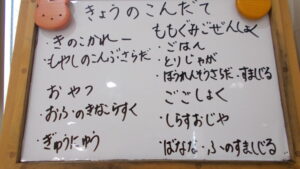 きょうのこんだて
・きのこかれー
・もやしのこんぶさらだ
おやつ
・おふのきなこらすく
・ぎゅうにゅう
ももぐみごぜんしょく
・ごはん
・とりじゃが
・ほうれんそうさらだ・すましじる
ごごしょく
・しらすおじや
・ばなな・ふのすましじる